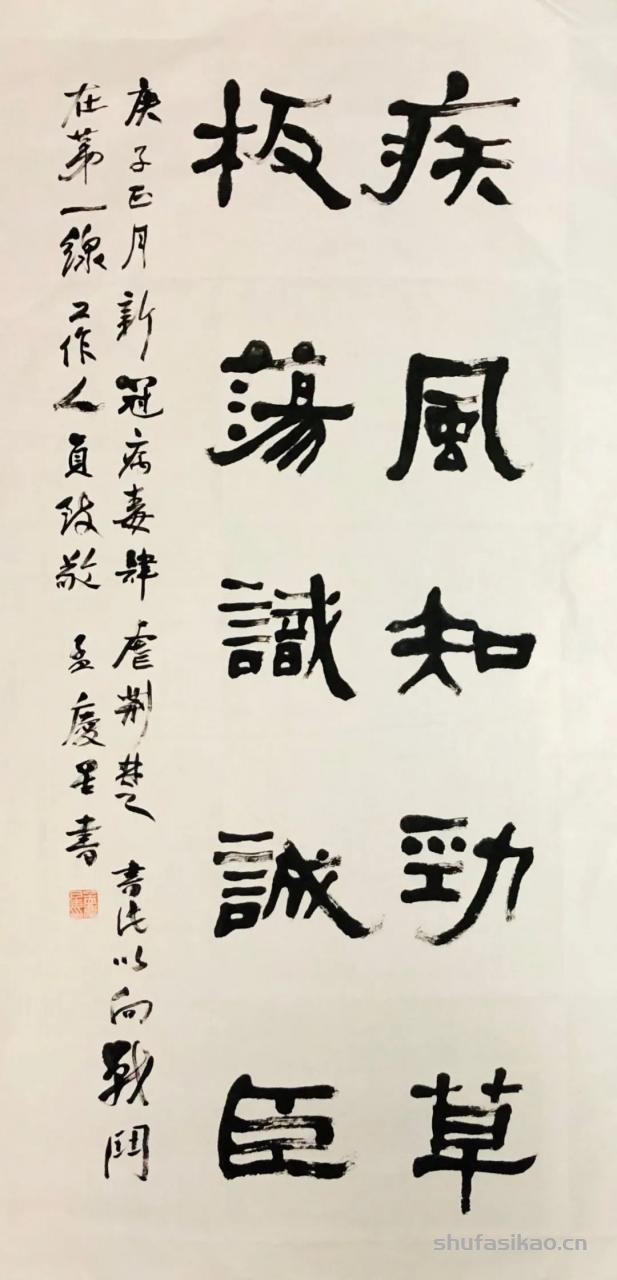 疾風知勁草
板蕩識誠臣
庚子正月新冠病毒肆虐荊楚 書此以向戰鬥
在第一線工作人員致敬 孟慶星書
shufasikao.cn